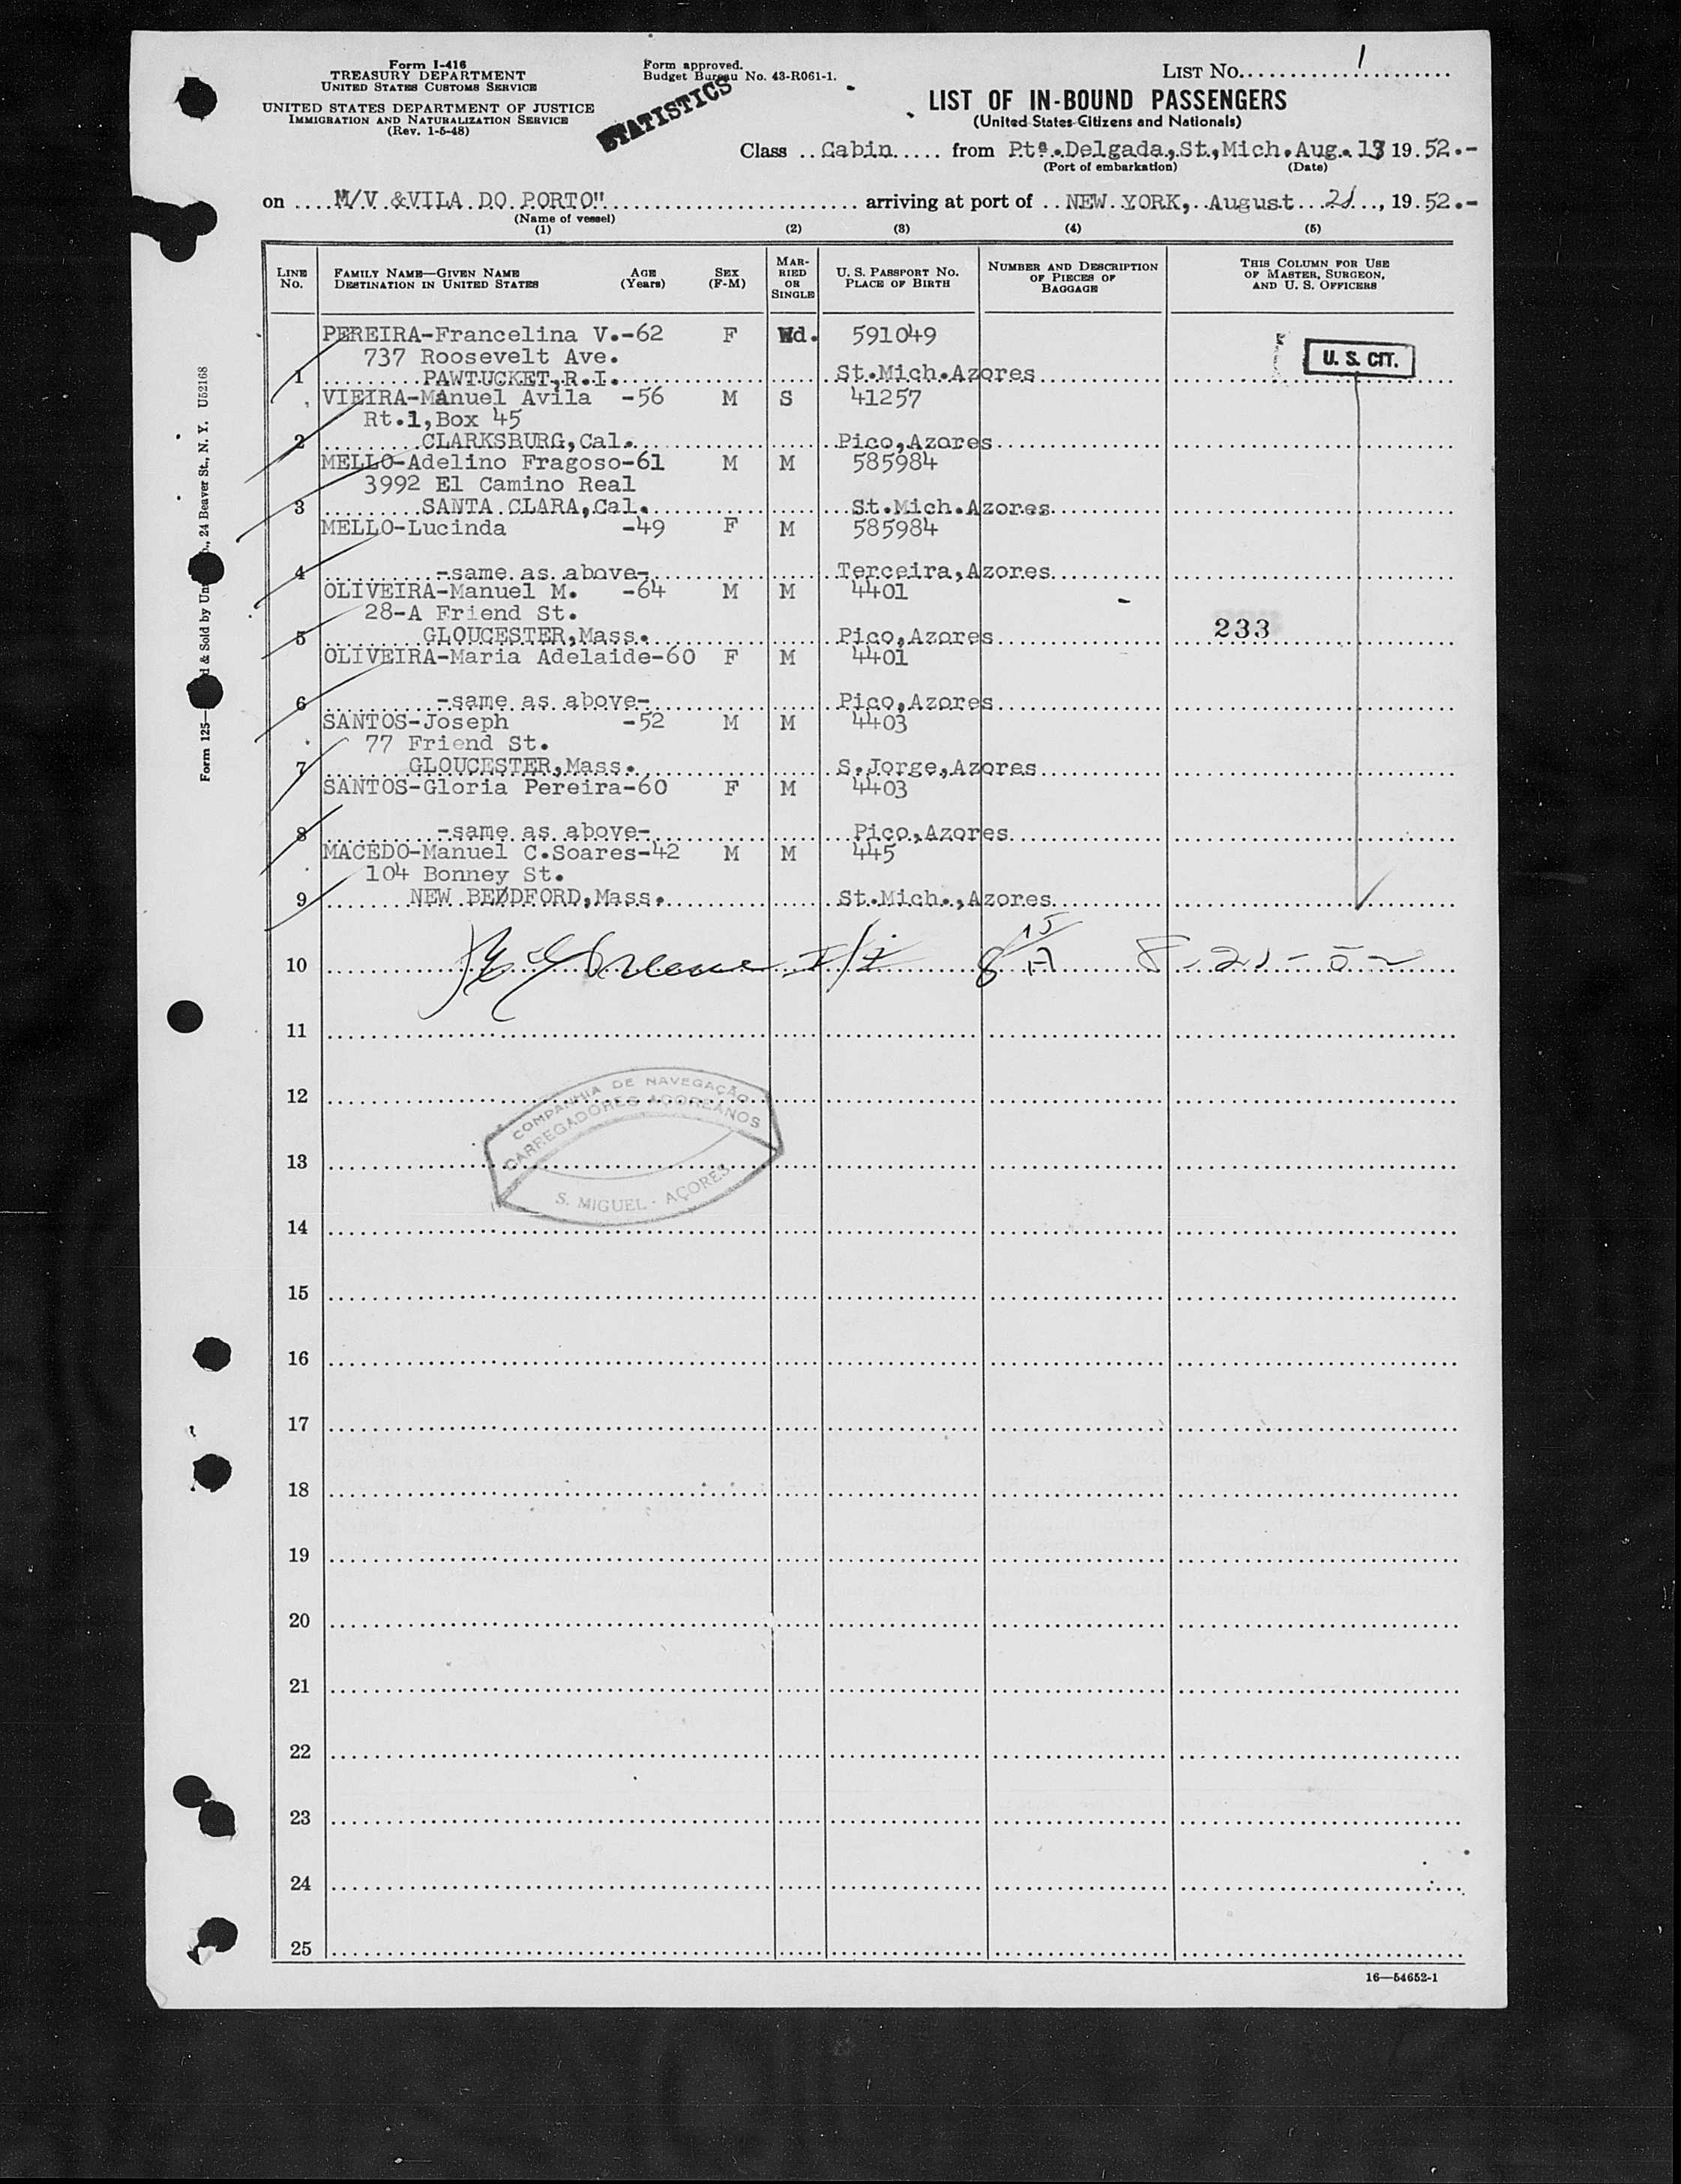 Form I-416
TREASURY DEPARTMENT
UNITED STATES CUSTOMS SERVICE
UNITED STATES DEPARTMENT OF JUSTICE
IMMIGRATION AND NATURALIZATION SERVICE
(Rev. 1-5-48)
Form approved.
Budget Bureau No. 43-R061-1.
STATISTICS
LIST No. 1
LIST OF IN-BOUND PASSENGERS
(United States Citizens and Nationals)
Class Cabin from Ptª.Delgada,St,Mich.Aug. 13 19 52.-
(Port of embarkation) (Date)
on M/V &VILA DO PORTO" arriving at port of NEW YORK, August 21, 19 52.-
(Name of vessel)
(1) (2) (3) (4) (5)
LINE No. FAMILY NAME—GIVEN NAME DESTINATION IN UNITED STATES AGE (Years) SEX (F-M) MARRIED OR SINGLE U. S. PASSPORT NO. PLACE OF BIRTH NUMBER AND DESCRIPTION OF PIECES OF BAGGAGE THIS COLUMN FOR USE OF MASTER, SURGEON, AND U. S. OFFICERS
PEREIRA-Francelina V.-62 F Wd. 591049
737 Roosevelt Ave. U. S. CIT.
1 PAWTUCKET,R.I. St.Mich.Azores
VIEIRA-Manuel Avila -56 M S 41257
Rt.1,Box 45
2 CLARKSBURG,Cal. Pico,Azores
MELLO-Adelino Fragoso-61 M M 585984
3992 El Camino Real
3 SANTA CLARA,Cal. St.Mich.Azores
MELLO-Lucinda -49 F M 585984
4 -same as above- Terceira,Azores
OLIVEIRA-Manuel M. -64 M M 4401
28-A Friend St.
5 GLOUCESTER,Mass. Pico,Azores 233
OLIVEIRA-Maria Adelaide-60 F M 4401
6 -same as above- Pico,Azores
SANTOS-Joseph -52 M M 4403
77 Friend St.
7 GLOUCESTER,Mass. S.Jorge,Azores
SANTOS-Gloria Pereira-60 F M 4403
8 -same as above- Pico,Azores
MACEDO-Manuel C.Soares-42 M M 445
104 Bonney St.
9 NEW BEDDFORD,Mass. St.Mich.,Azores
10 8 15 A 8-21-52
11
12
COMPANHIA DE NAVEGAÇÃO
CARREGADORES AÇOREANOS
13
S. MIGUEL - AÇORES
14
15
16
17
18
19
20
21
22
23
24
25
16—54652-1
Form 125— d & Sold by Un , 24 Beaver St., N. Y. U52168